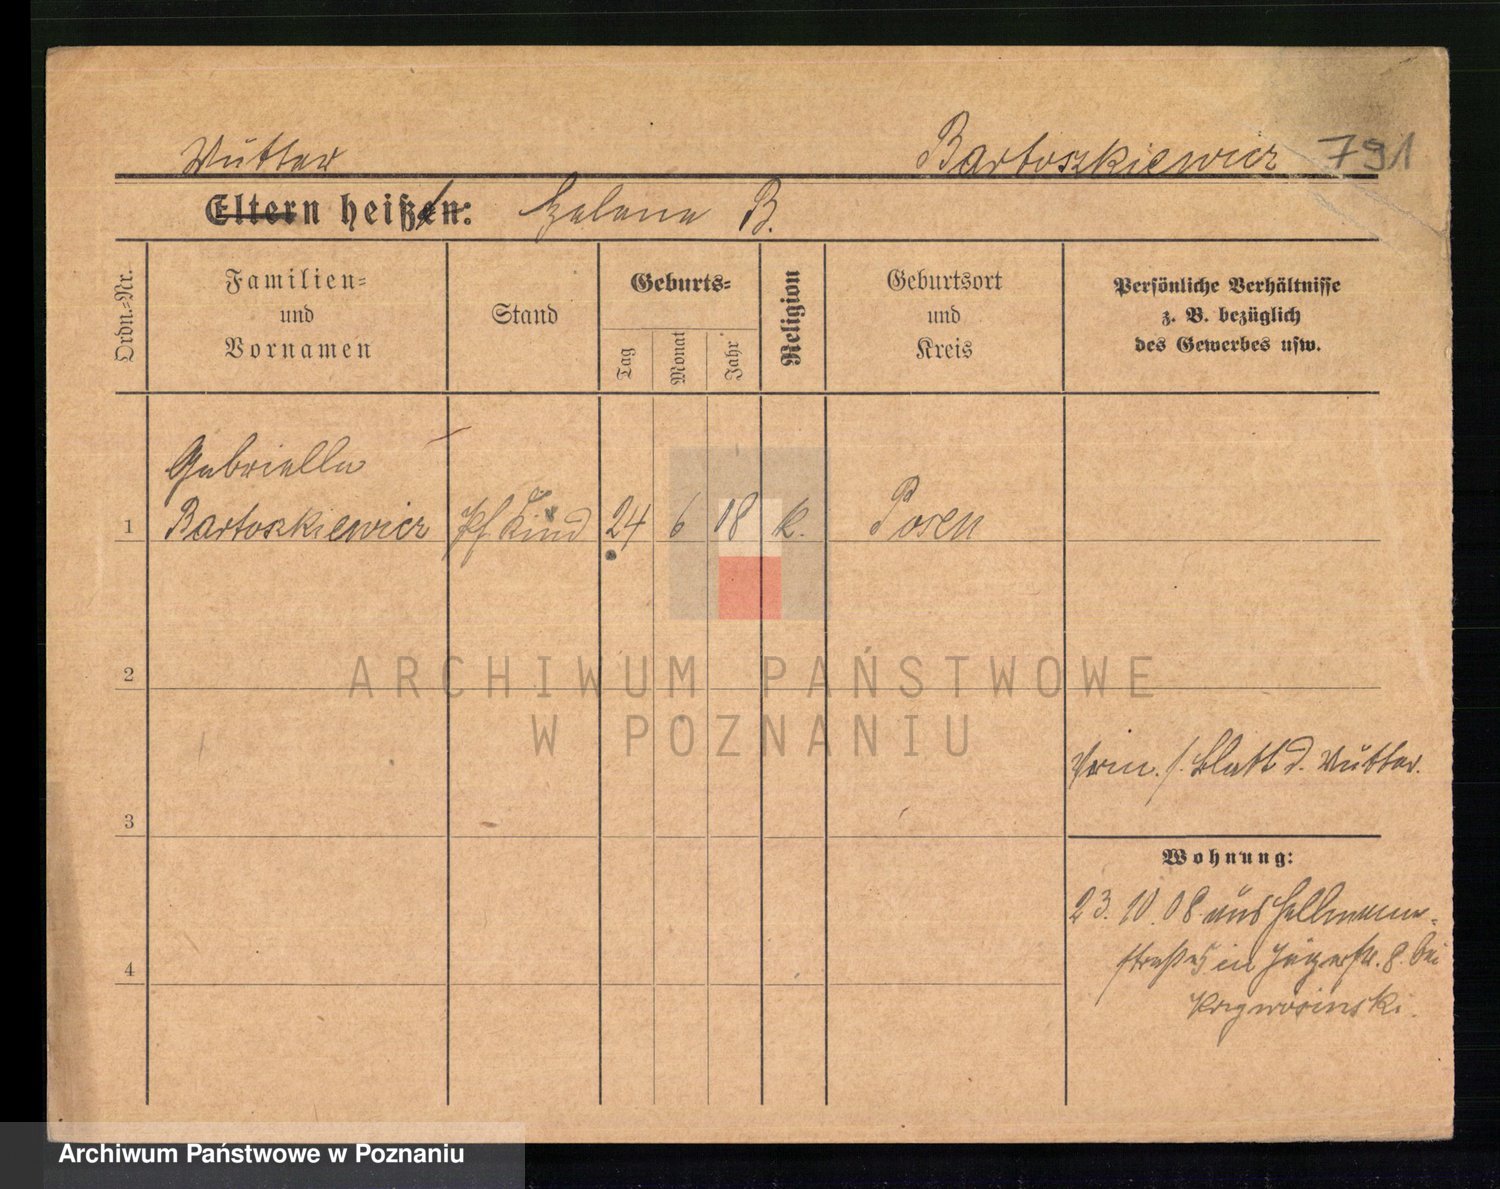 Mutter Bartoszkiewicz 791
Eltern heißen: Helene B.
Ordn.-Nr.
Familien-
und
Vornamen
Stand
Geburts-
Tag
Monat
Jahr
Religion
Geburtsort
und
Kreis
Persönliche Verhältnisse
z. B. bezüglich
des Gewerbes usw.
Gabriella
1 Bartoszkiewicz Pf. Kind 24 6 08 k. Posen
2
ARCHIWUM PAŃSTWOWE
W POZNANIU
s. Blatt d. Mutter.
3
Wohnung:
23. 10. 08 aus Hellmann-
straße 5 in Jägerstr. 8. bei
4
Archiwum Państwowe w Poznaniu